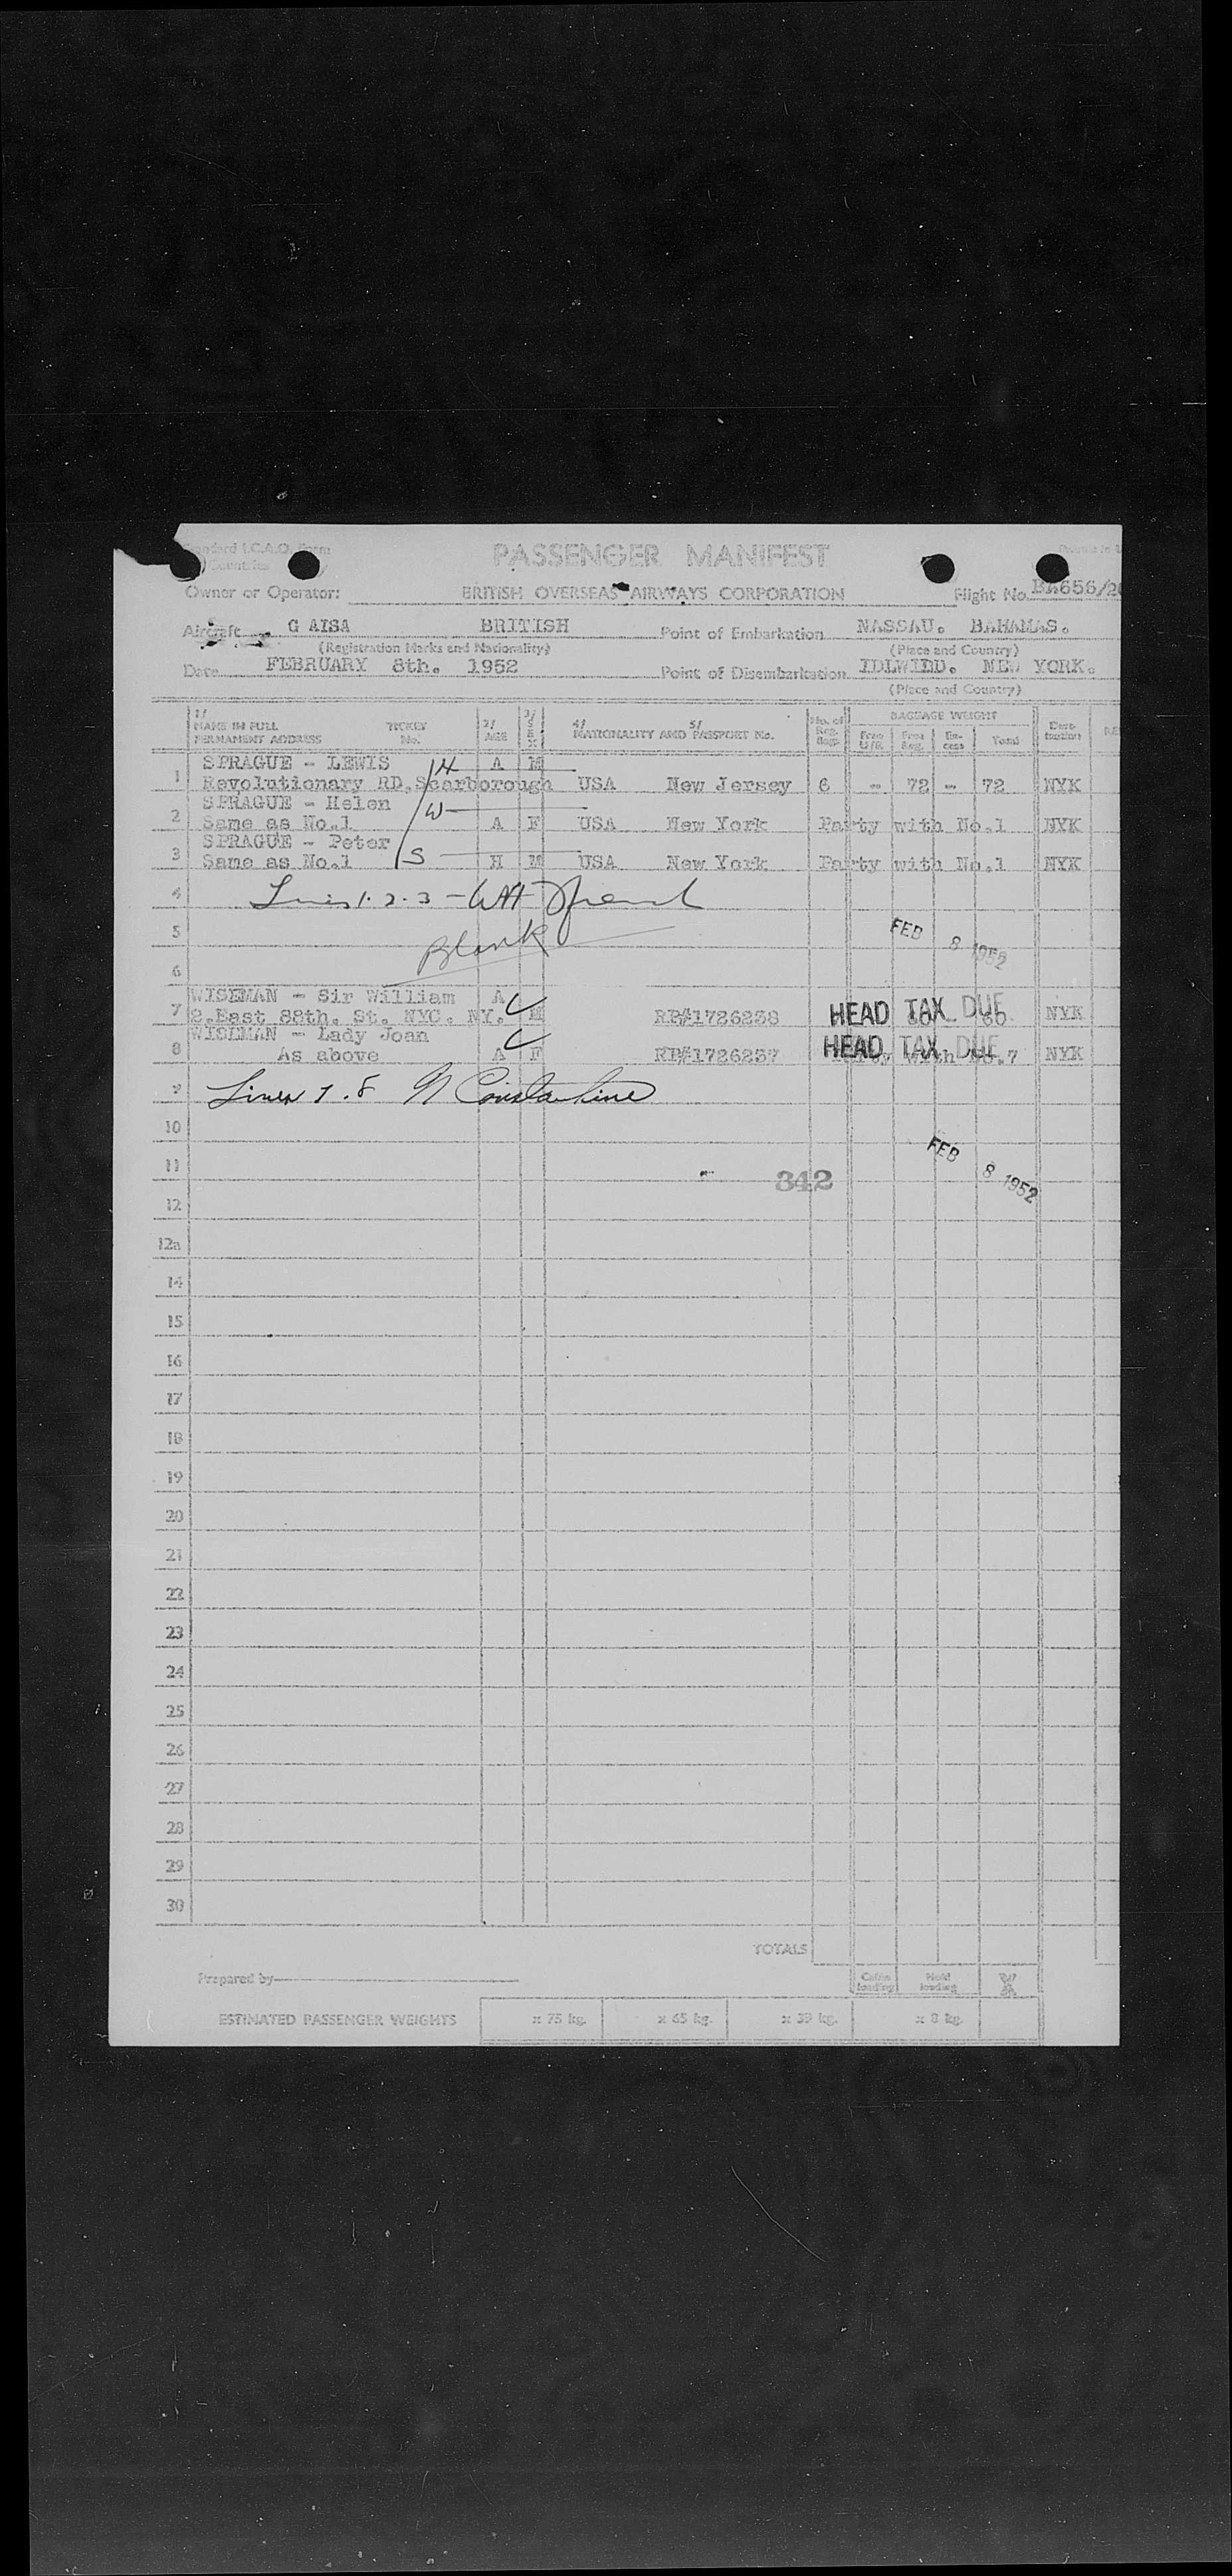 Standard I.C.A.O. Form
Countries
PASSENGER MANIFEST
Owner or Operator: BRITISH OVERSEAS AIRWAYS CORPORATION Flight No. BA656/2
Aircraft G AISA BRITISH Point of Embarkation NASSAU. BAHAMAS.
(Registration Marks and Nationality) (Place and Country)
Date FEBRUARY 8th. 1952 Point of Disembarkation IDLWILD. NEW YORK.
(Place and Country)
1/ NAME IN FULL PERMANENT ADDRESS TICKET No. 2/ AGE 3/ SEX 4/ NATIONALITY AND 5/ PASSPORT No. No. of Reg. Bags BAGGAGE WEIGHT Free U/R Free Reg. Ex- cess Total Dest- ination
SPRAGUE - LEWIS H A M
1 Revolutionary RD. Scarborough USA New Jersey 6 - 72 - 72 NYK
SPRAGUE - Helen W
2 Same as No.1 A F USA New York Party with No.1 NYK
SPRAGUE - Peter
3 Same as No.1 S H M USA New York Party with No.1 NYK
4 Lines 1.2.3 -
5 Blank FEB 8 1952
6
WISEMAN - Sir William A
7 2.East 88th. St. NYC. NY. M RP#1726238 HEAD TAX DUE NYK
WISEMAN - Lady Joan
8 As above A F RP#1726237 HEAD TAX DUE NYK
9 Lines 7.8 N Constantine
10
11 342 FEB 8 1952
12
12a
14
15
16
17
18
19
20
21
22
23
24
25
26
27
28
29
30
TOTALS
Prepared by Cabin loading Hold loading
ESTIMATED PASSENGER WEIGHTS x 75 kg. x 65 kg. x 39 kg. x 8 kg.